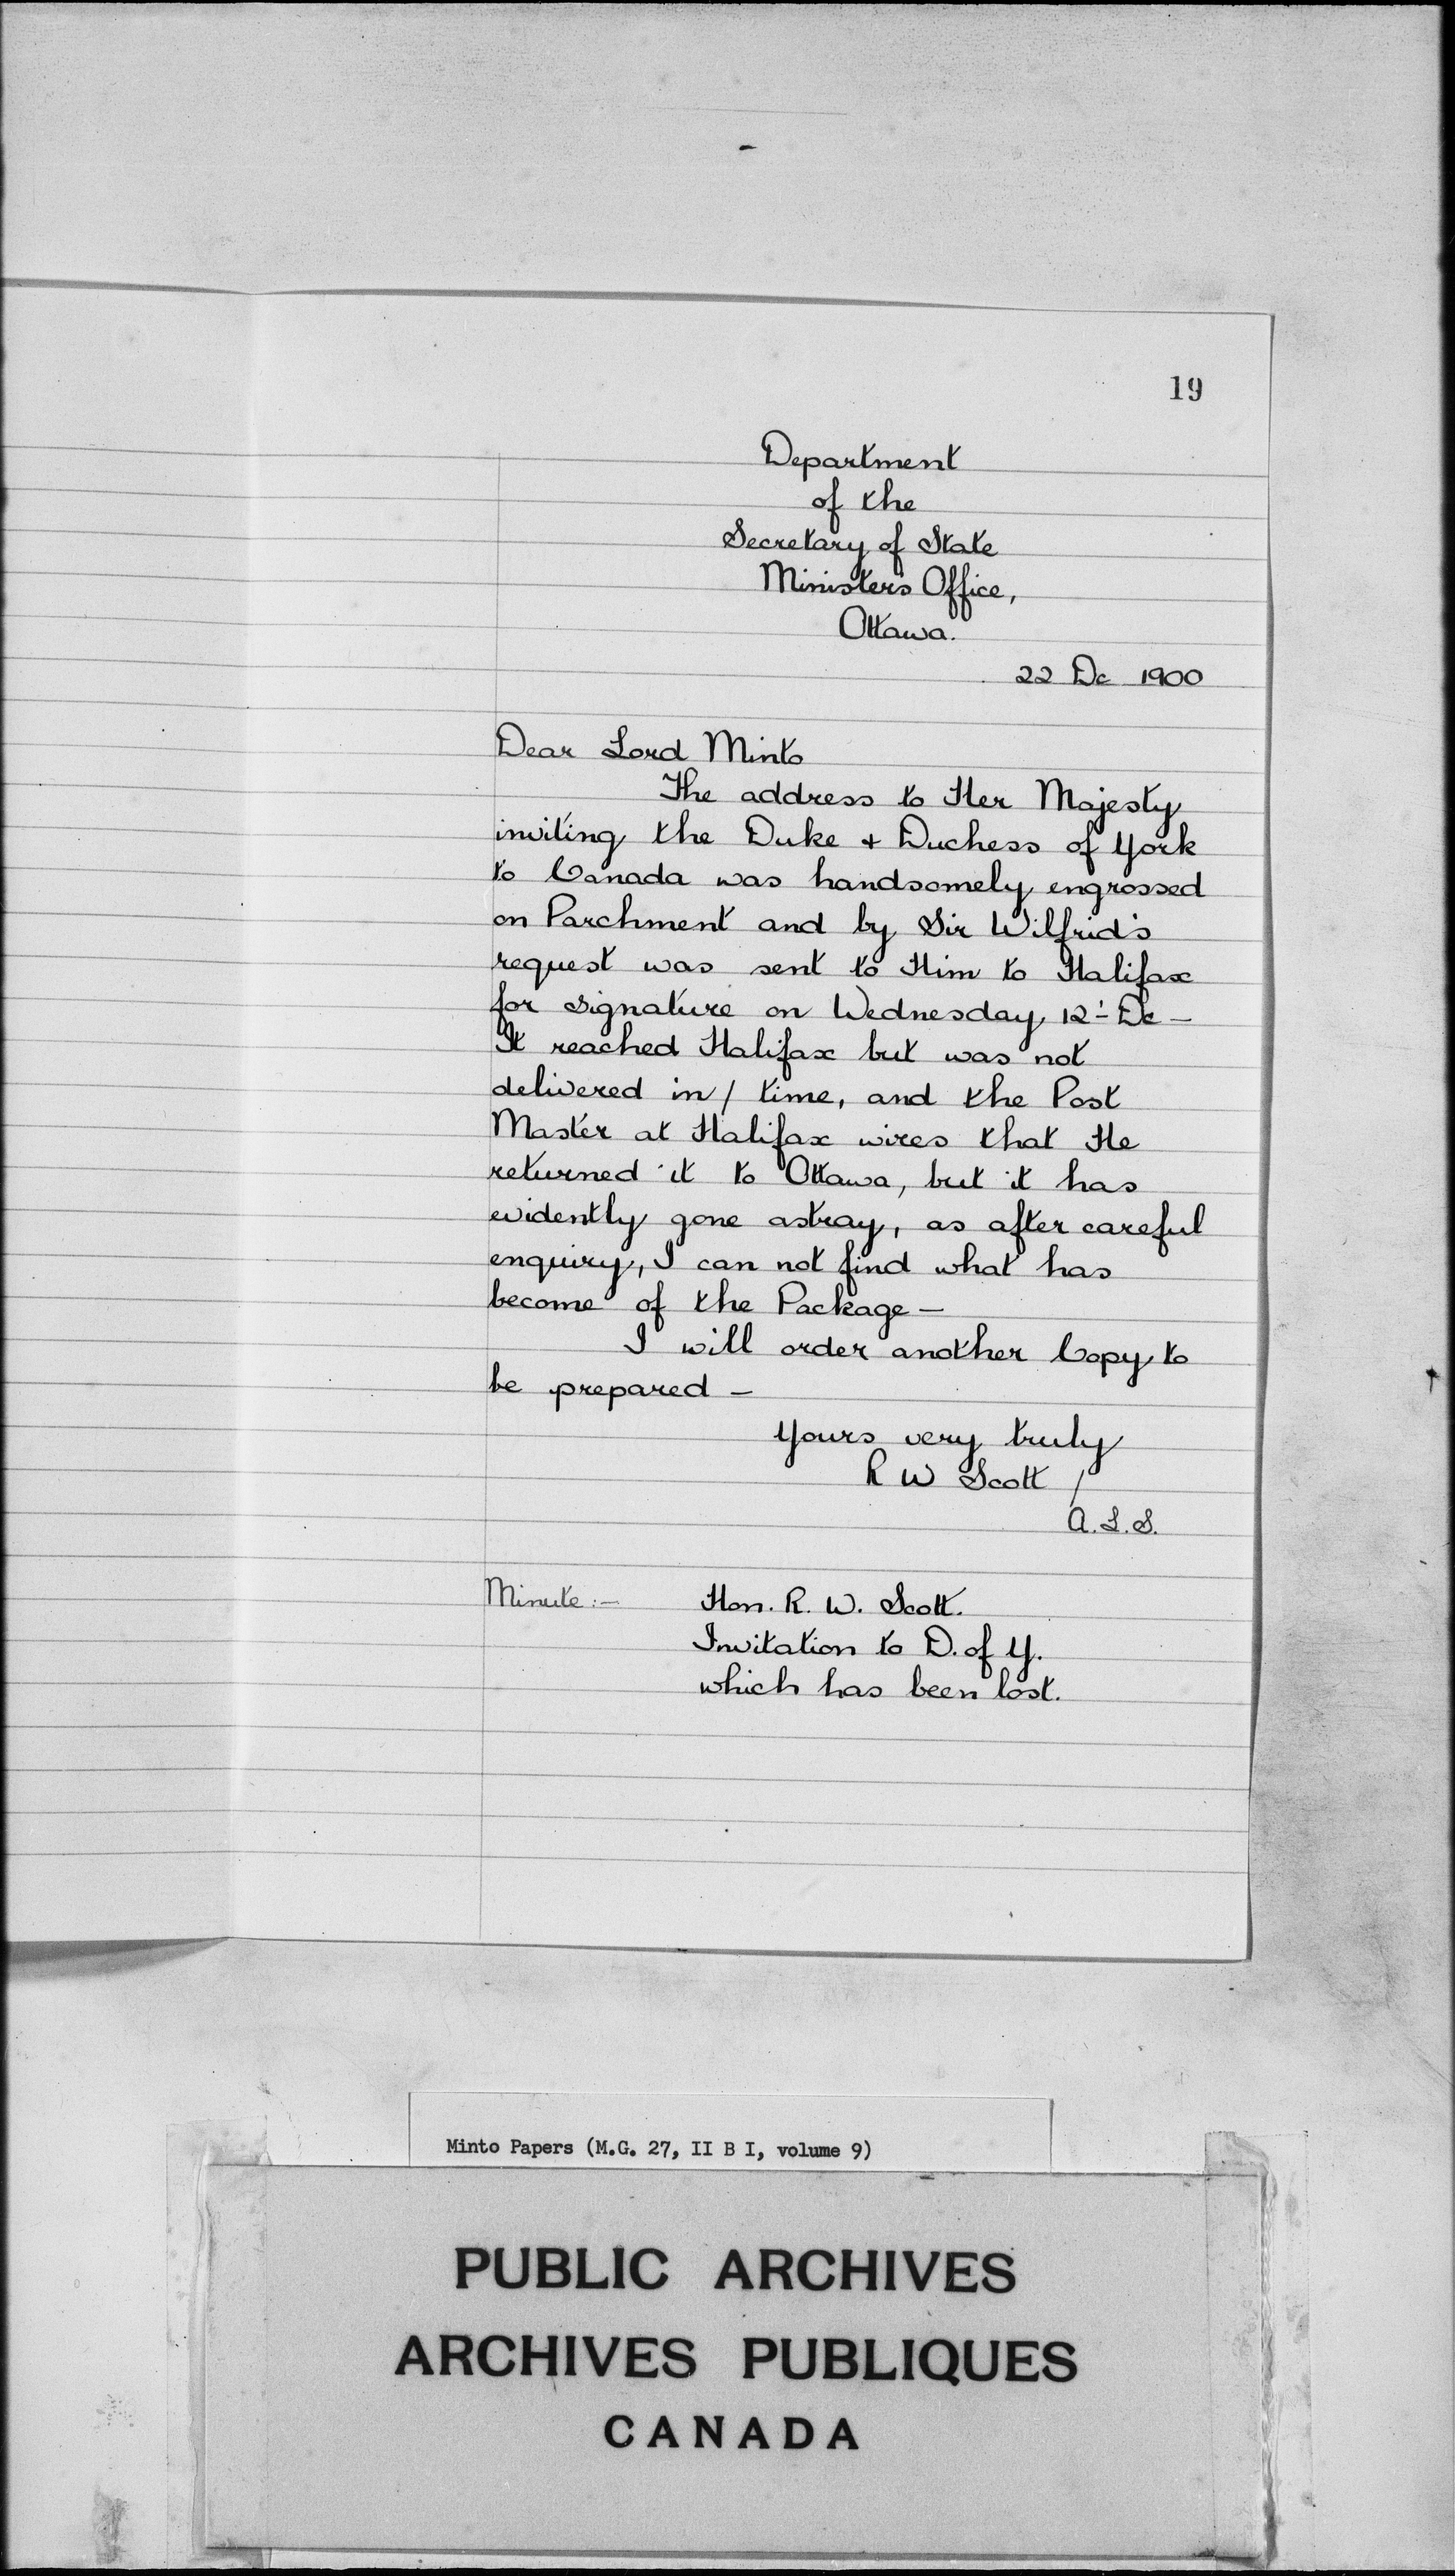 19
Department
of the
Secretary of State
Minister's Office,
Ottawa.
22 Dc 1900
Dear Lord Minto
The address to Her Majesty
inviting the Duke + Duchess of York
to Canada was handsomely engrossed
on Parchment and by Sir Wilfrid's
request was sent to Him to Halifax
for signature on Wednesday 12' Dc –
It reached Halifax but was not
delivered in / time, and the Post
Master at Halifax wires that He
returned it to Ottawa, but it has
evidently gone astray, as after careful
enquiry, I can not find what has
become of the Package –
I will order another Copy to
be prepared –
Yours very truly
R W Scott /
A.L.S.
Minute :– Hon. R. W. Scott.
Invitation to D. of Y.
which has been lost.
Minto Papers (M.G. 27, II B I, volume 9)
PUBLIC ARCHIVES
ARCHIVES PUBLIQUES
CANADA